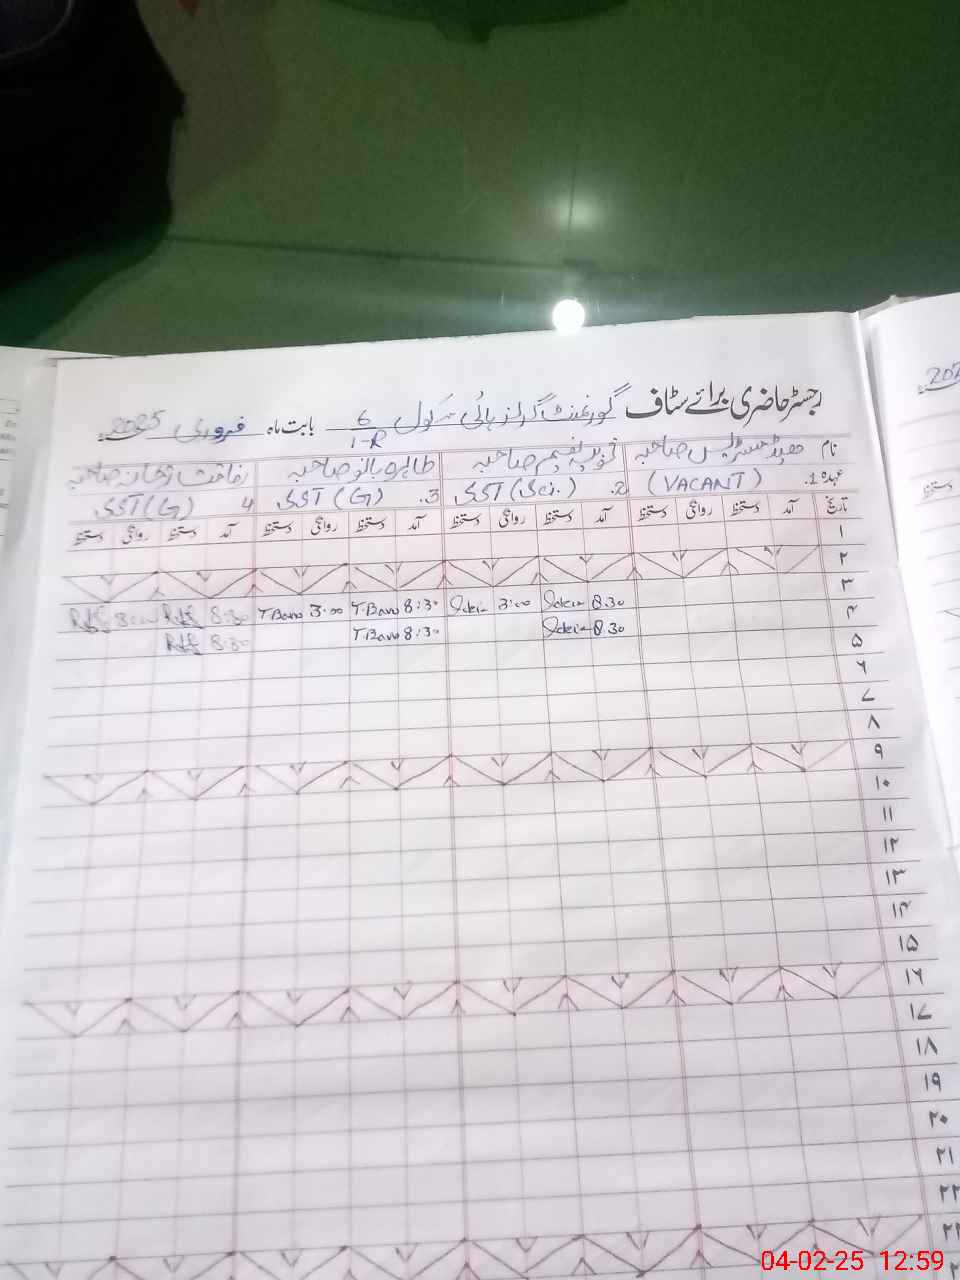 رجسٹر حاضری برائے سٹاف گورنمنٹ گرلز ہائی سکول 6/1-R بابت ماہ فروری 2025
نام ہیڈ مسٹریس صاحبہ صاحبہ طاہرہ بانو صاحبہ صاحبہ
عہدہ 1. (VACANT) 2. SST (Sci.) 3. SST (G) 4 SST (G)
تاریخ آمد دستخط روانگی دستخط آمد دستخط روانگی دستخط آمد دستخط روانگی دستخط آمد دستخط روانگی دستخط
۱
۲
۳ 8:30 3:00 8:30 T.Bano 3:00 T.Bano 8:30 3:00
۴ 8:30 8:30 T.Bano 8:30
۵
۶
۷
۸
۹
۱۰
۱۱
۱۲
۱۳
۱۴
۱۵
۱۶
۱۷
۱۸
۱۹
۲۰
۲۱
۲۲
۲۳
202
دستخط
04-02-25 12:59